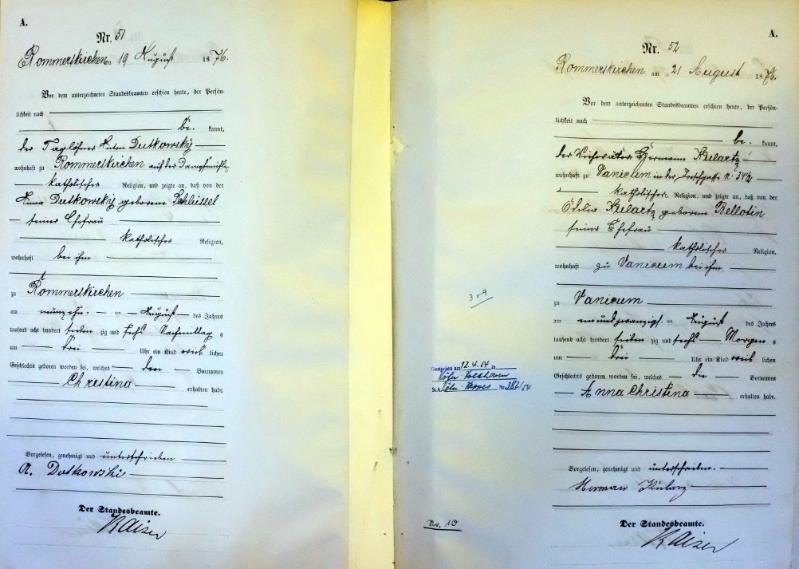 A.
Nr. 51
Rommerskirchen am 19 August 1876.
Vor dem unterzeichneten Standesbeamten erschien heute, der Persön-
lichkeit nach
be kannt,
der Taglöhner Anton Dutkowsky
wohnhaft zu Rommerskirchen auf der Dampfmühle
katholischer Religion, und zeigte an, daß von der
Anna Dutkowsky geborene Schlüssel
seiner Ehefrau
katholischer Religion,
wohnhaft bei ihm
zu Rommerskirchen
am neunzehn August des Jahres
tausend acht hundert sieben zig und sechs Nachmittag s
um drei Uhr ein Kind weib lichen
Geschlechts geboren worden sei, welches den Vornamen
Christina erhalten habe.
Vorgelesen, genehmigt und unterschrieben
A. Dutkowski
Der Standesbeamte.
Kaiser
A.
Nr. 52
Rommerskirchen am 21 August 1876.
Vor dem unterzeichneten Standesbeamten erschien heute, der Persön-
lichkeit nach
be kannt,
der Hermann
wohnhaft zu Vanicum in der N: 342
katholischer Religion, und zeigte an, daß von der
geborene Bellotin
seiner Ehefrau
katholischer Religion,
wohnhaft zu Vanicum bei ihm
zu Vanicum
am einundzwanzigst August des Jahres
tausend acht hundert sieben zig und sechs Morgen s
um drei Uhr ein Kind weib lichen
Geschlechts geboren worden sei, welches die Vornamen
Anna Christina erhalten habe.
Vorgelesen, genehmigt und unterschrieben.
Herman
Der Standesbeamte.
Kaiser
12.4.54
Köln
Köln Nr. 382/54